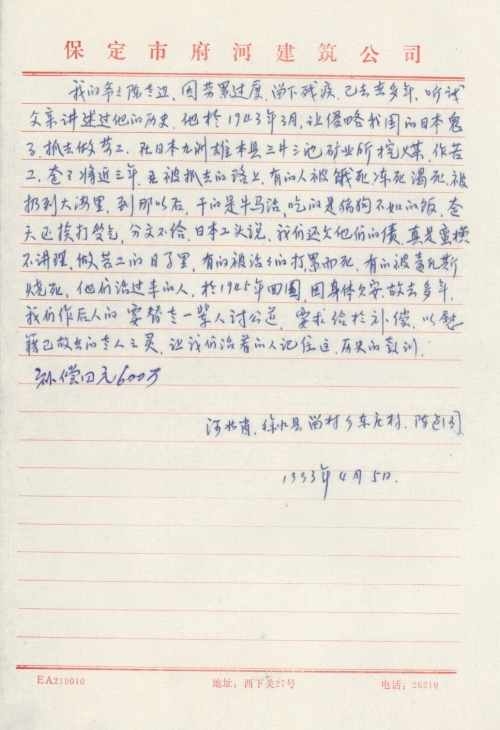 保定市府河建筑公司
我的爷爷陈老边,因劳累过度,当下残疾,已去去多年,听我
父亲讲述过他的历史。他於1943年3月,让侵略我国的日本鬼
子,抓去做劳工,在日本九洲雄本县三井三池矿业所挖煤,作苦
工,苍了将近三年,在被抓去的路上,有的人被饿死,冻死渴死,被
扔到大海里,到那以后,干的是牛马活,吃的是猪狗不如的饭,苍
天还挨打受气,分文不给,日本工头说,我们还欠他们的债,真是蛮横
不讲理,做苦工的日子里,有的被活活的打累而死,有的被毒瓦斯
烧死,他们活过来的人,於1945年回国,因身体欠安,故去多年,
我们作后人的要替老一辈人讨公道,要求给於补偿,以慰
籍已故去的老人之灵,让我们活着的人记住这历史的教训.
补偿日元600万
河北省,徐水县当村乡东庄村,陈
1993年4月5日.
EA219010 地址:西下关27号 电话:26219